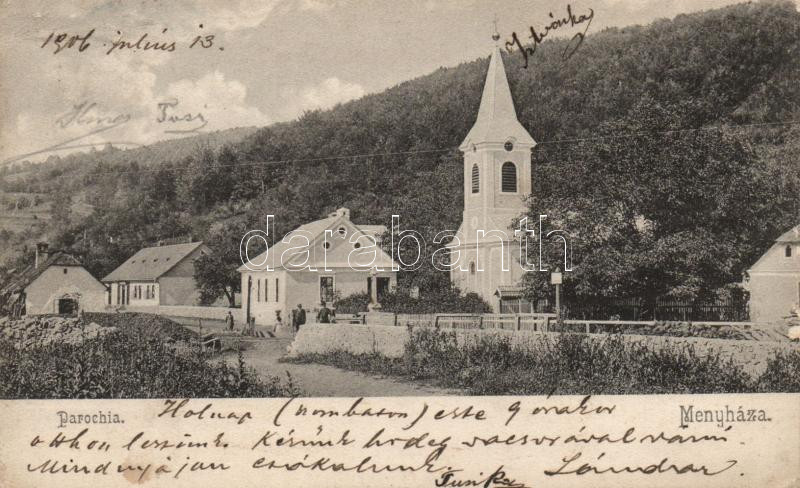 1906 július 13.
Istvánka
Tusi
darabanth
Parochia.
Menyháza.
Holnap (szombaton) este 9 órakor
otthon leszünk. Kérünk hideg vacsorával várni.
Mindnyájan csókolunk.
Tusika Sándor